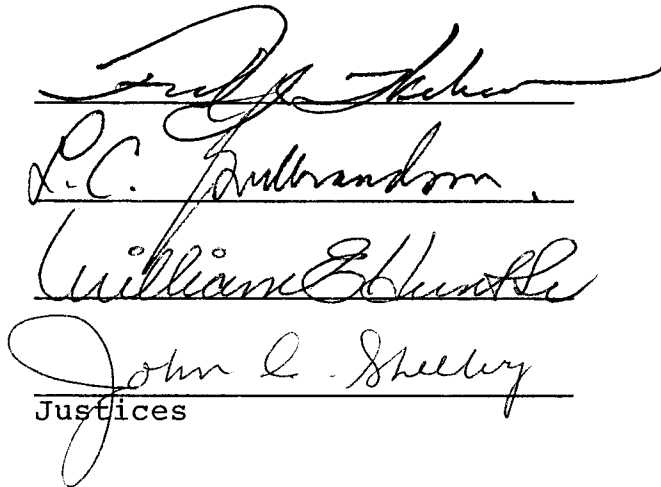 L.C. Gulbrandson.
William E Hunt Sr
John C. Sheehy
Justices